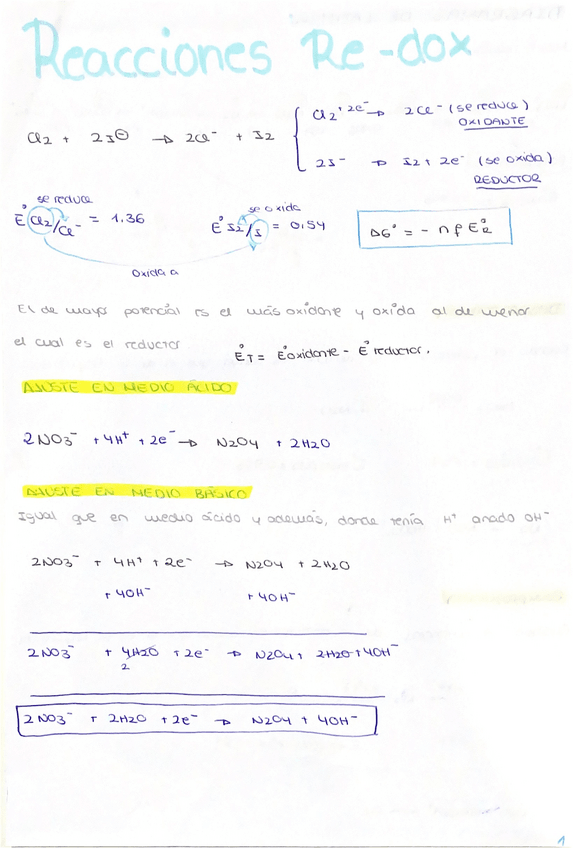 Reacciones Re-dox
Cl2 + 2e⁻ → 2Cl⁻ (se reduce)
OXIDANTE
Cl2 + 2I⊖ → 2Cl⁻ + I2
2I⁻ → I2 + 2e⁻ (se oxida)
REDUCTOR
se reduce
se oxida
E° Cl2/Cl⁻ = 1.36
E° I2/I = 0,54
ΔG° = - n F E°R
Oxida a
El de mayor potencial es el más oxidante y oxida al de menor
el cual es el reductor.
E°T = E°oxidante - E° reductor.
AJUSTE EN MEDIO ÁCIDO
2NO3⁻ + 4H⁺ + 2e⁻ → N2O4 + 2H2O
AJUSTE EN MEDIO BÁSICO
Igual que en medio ácido y además, donde tenía H⁺ añado OH⁻
2NO3⁻ + 4H⁺ + 2e⁻ → N2O4 + 2H2O
+ 4OH⁻ + 4OH⁻
2NO3⁻ + 4H2O + 2e⁻ → N2O4 + 2H2O + 4OH⁻
2
2NO3⁻ + 2H2O + 2e⁻ → N2O4 + 4OH⁻
1